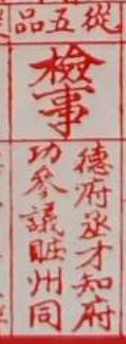 從五品
檢事
德府丞才知府
功參議賍州同